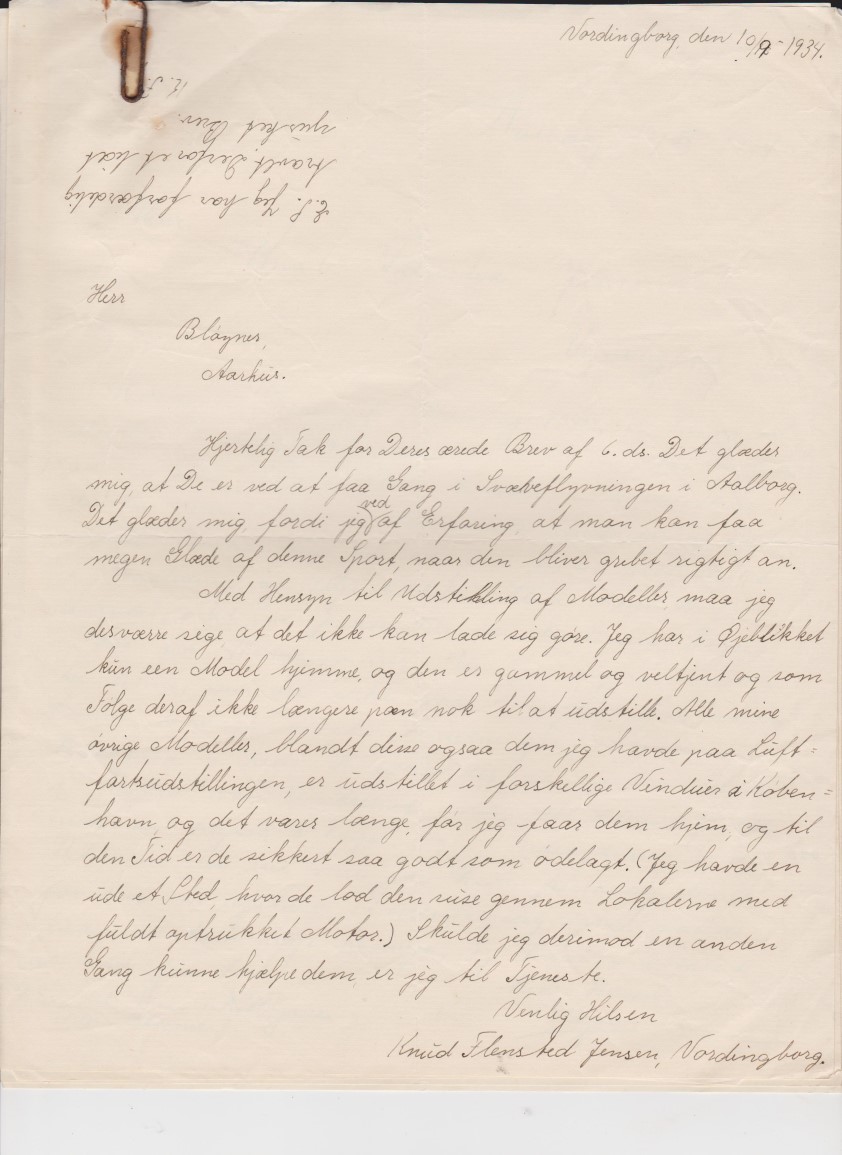 Vordingborg, den 10/9-1934.
E.S. Jeg har forfærdelig
travlt, derfor et lidt
sjusket Brev.
Herr
Bløynes,
Aarhus.
Hjertelig Tak for Deres ærede Brev af 6. ds. Det glæder
mig, at De er ved at faa Gang i Svæveflyvningen i Aalborg.
Det glæder mig, fordi jeg ved af Erfaring, at man kan faa
megen Glæde af denne Sport, naar den bliver grebet rigtigt an.
Med Hensyn til Udstilling af Modeller, maa jeg
desværre sige, at det ikke kan lade sig gøre. Jeg har i Øjeblikket
kun een Model hjemme, og den er gammel og veltjent og som
Følge deraf ikke længere pæn nok til at udstille. Alle mine
øvrige Modeller, blandt disse ogsaa dem jeg havde paa Luft=
fartsudstillingen, er udstillet i forskellige Vinduer i Køben=
havn, og det varer længe, før jeg faar dem hjem, og til
den Tid er de sikkert saa godt som ødelagt. (Jeg havde en
ude et Sted, hvor de lod den suse gennem Lokalerne med
fuldt optrukket Motor.) Skulde jeg derimod en anden
Gang kunne hjælpe dem, er jeg til Tjeneste.
Venlig Hilsen
Knud Flensted Jensen, Vordingborg.